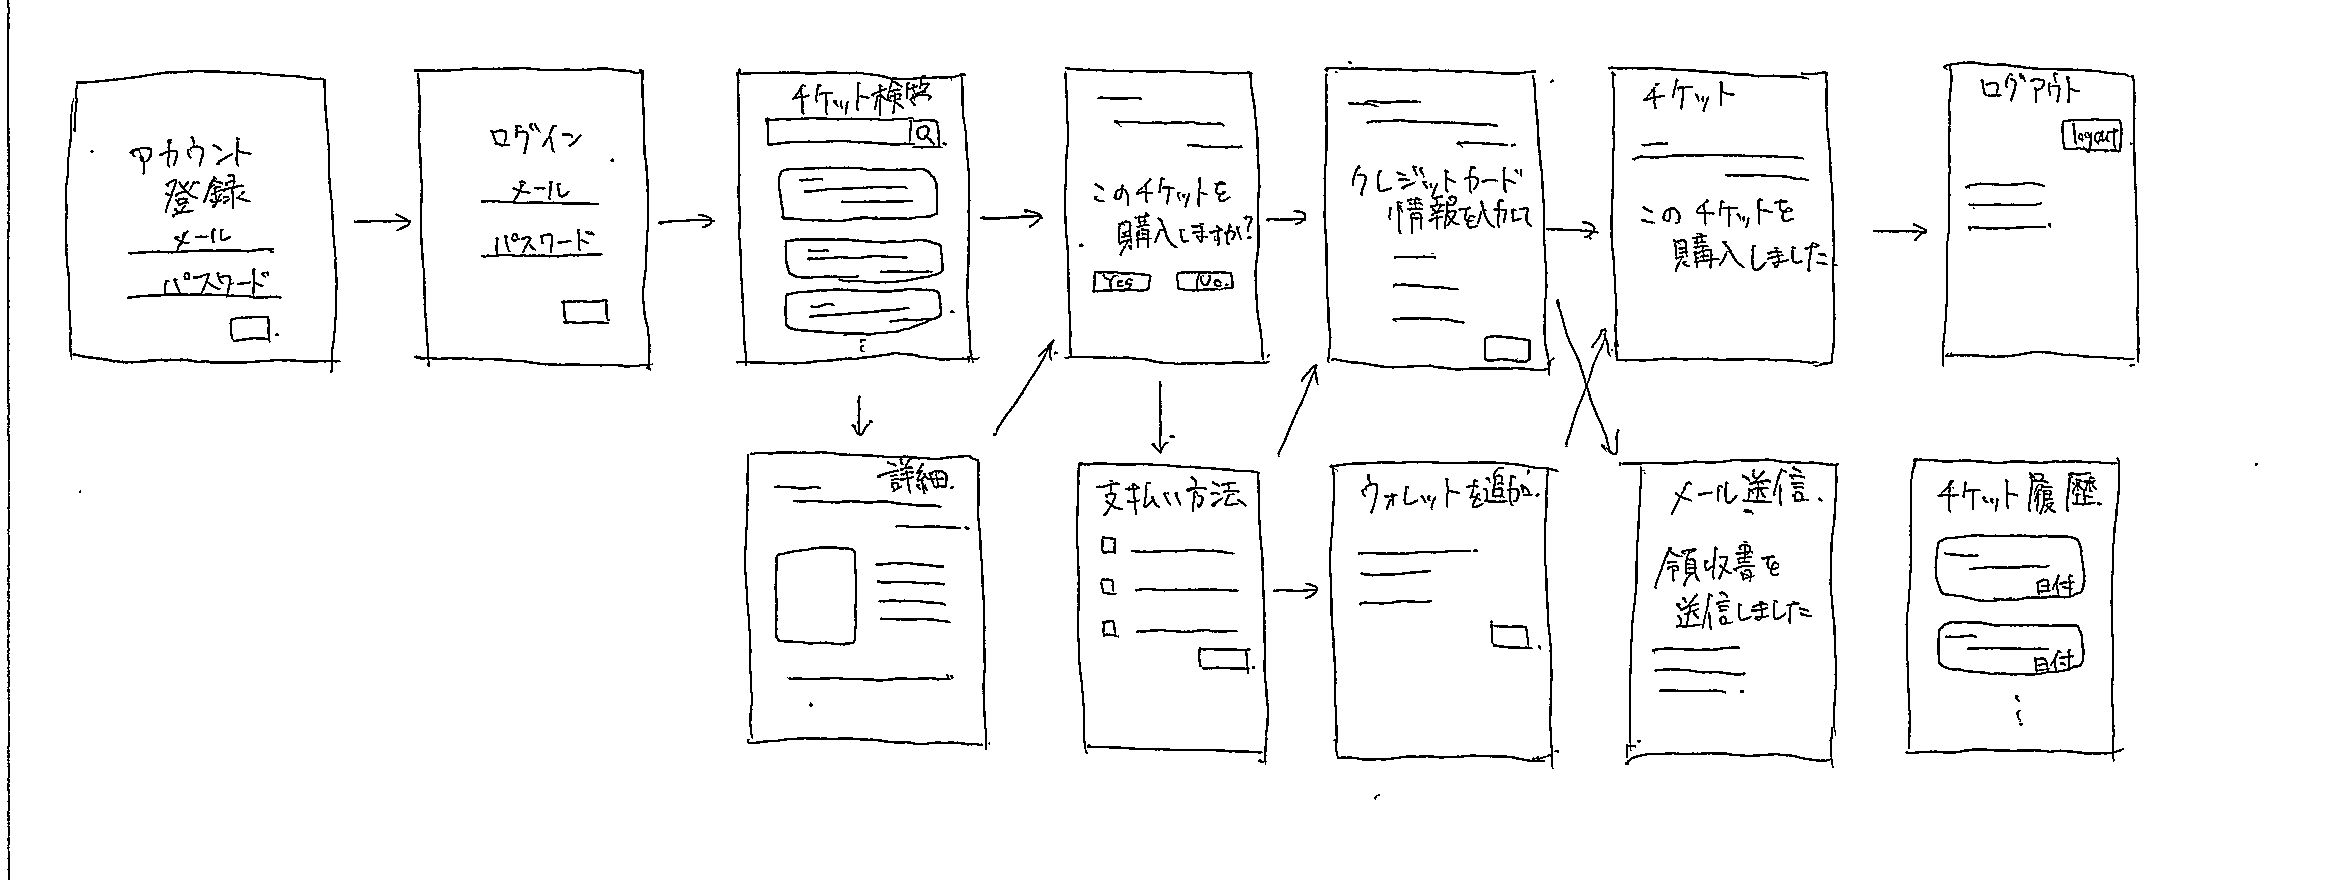 アカウント
登録
メール
パスワード
ログイン
メール
パスワード
チケット検索
Q
このチケットを
購入しますか?
Yes
No.
クレジットカード
情報を入力して
チケット
このチケットを
購入しました
ログアウト
logout
詳細.
支払い方法
ウォレットを追加.
メール送信.
領収書を
送信しました
チケット履歴.
日付
日付